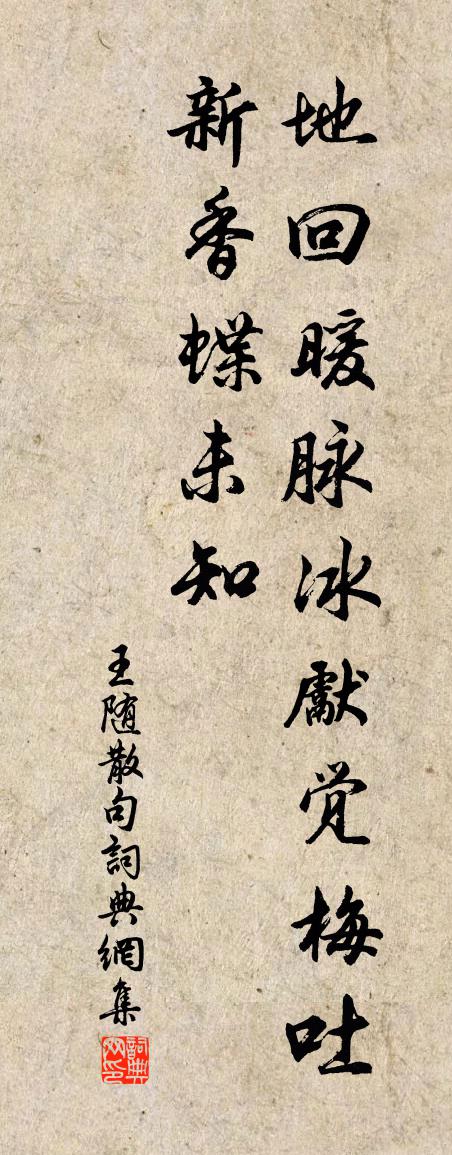 地回暖脉冰獻觉梅吐
新香蝶未知
王随散句詞典網集
詞典网印